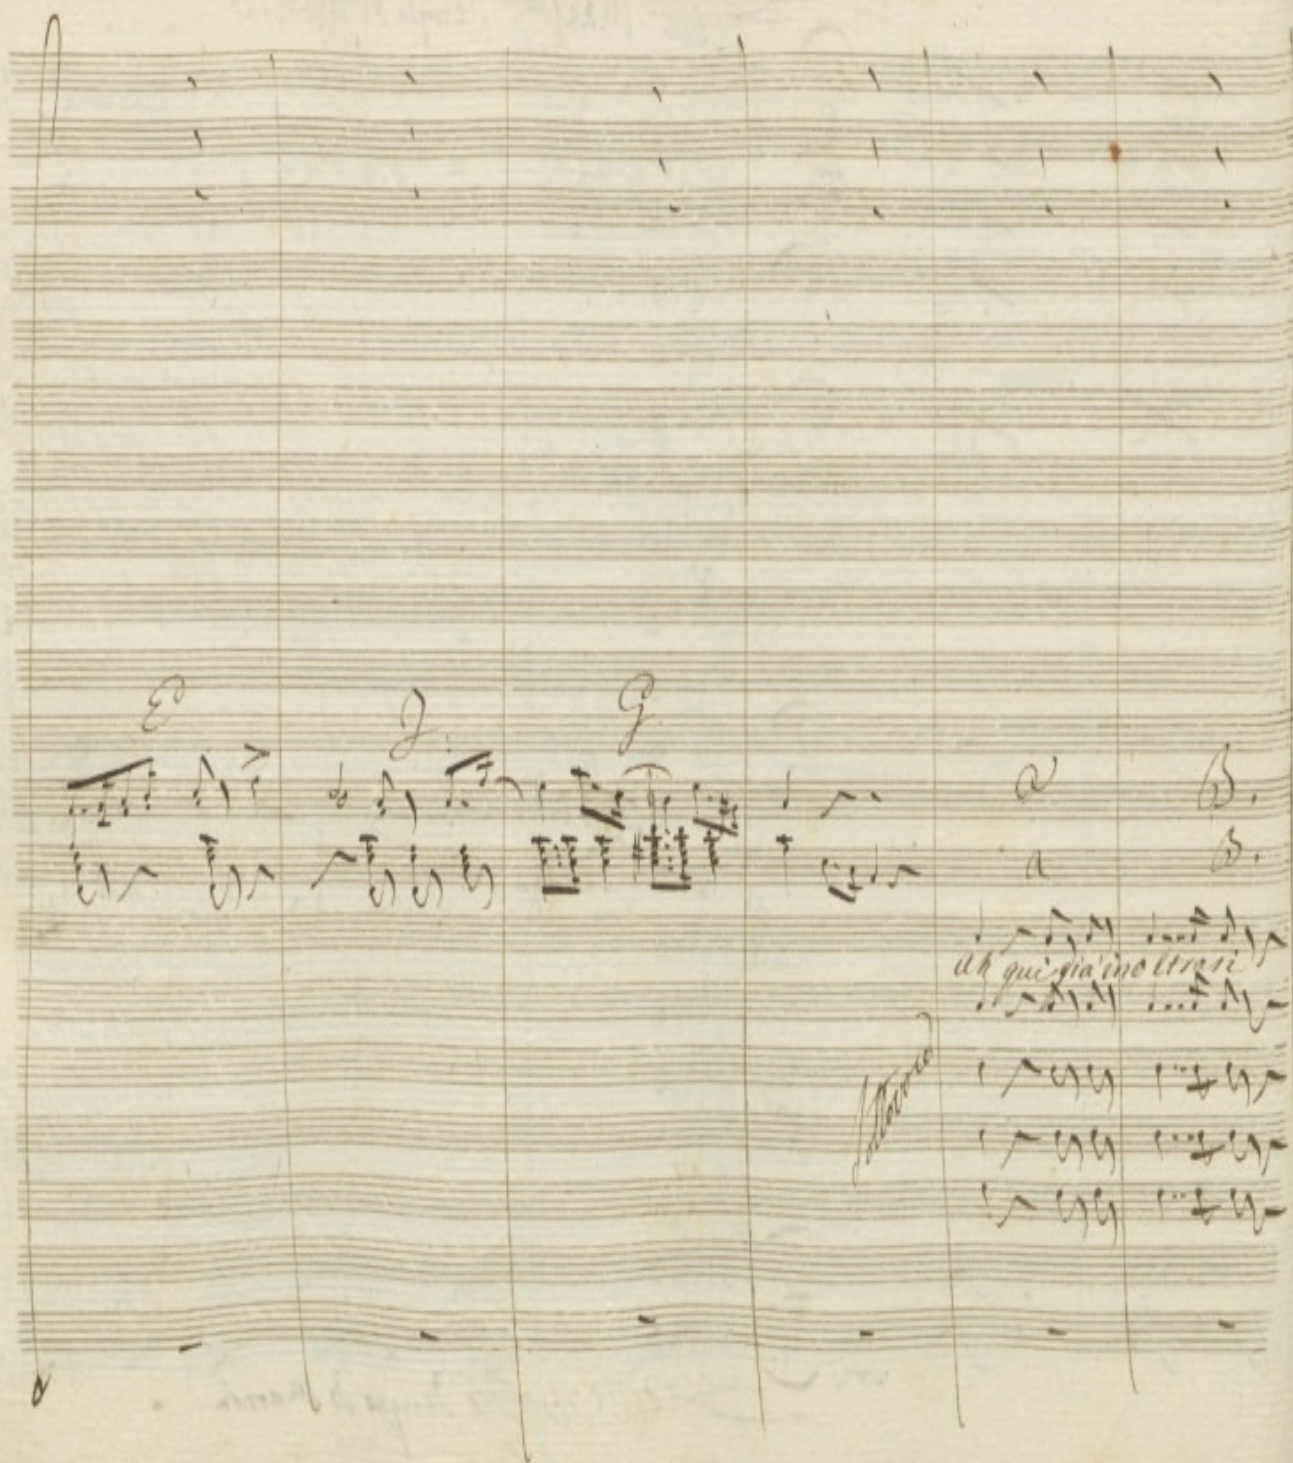 E F G
a B.
a B.
Ah qui già inoltrasi
Sottovoce